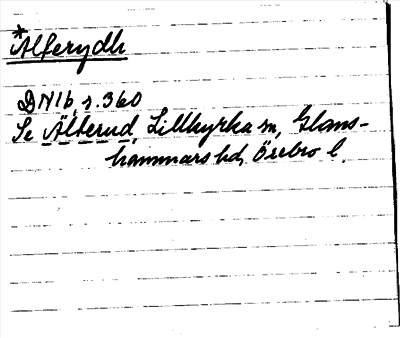 *Alferydh
DN1b, s. 360
Se Älterud, Lillkyrka sn, Glans-
hammars hd, Örebro l.